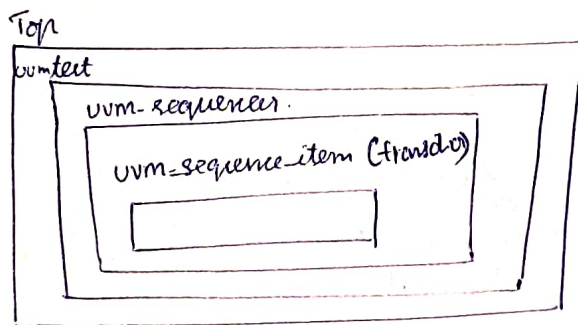 Top
uvmtest
uvm-sequencer.
uvm-sequence-item